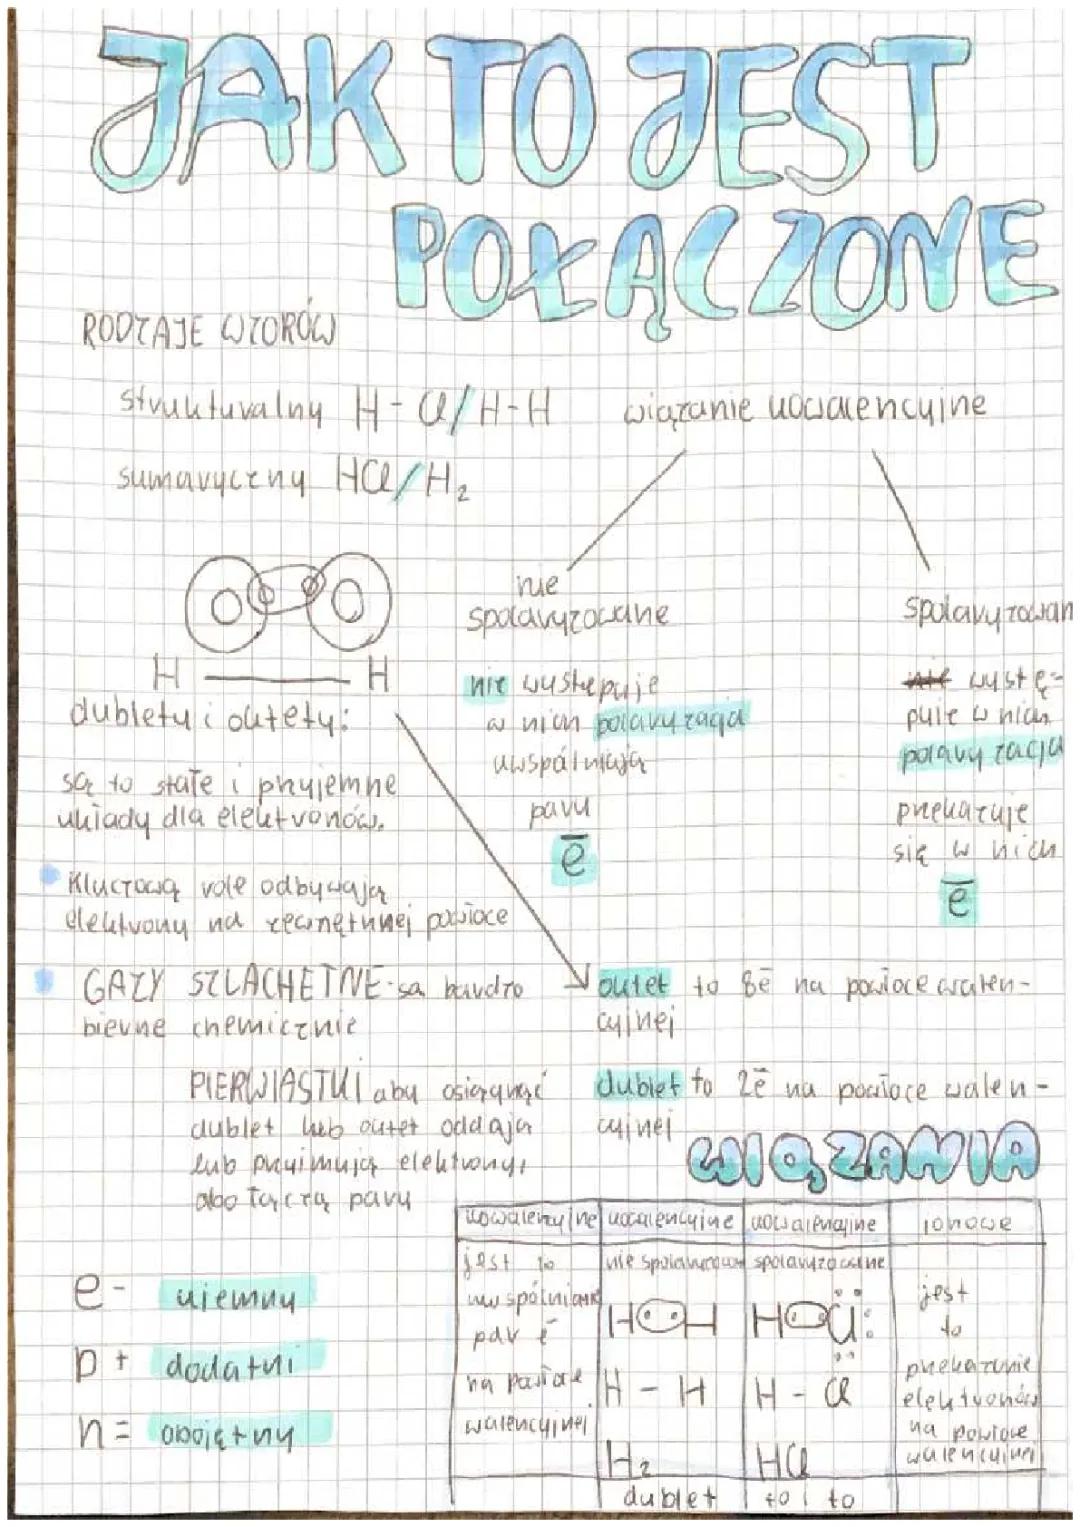 JAK TO JEST
POŁĄCZONE
RODZAJE WZORÓW
strukturalny H-Cl/H-H
sumaryczny HCl/H₂
wiązanie kowalencyjne
nie
spolaryzowane
nie występuje
w nich polaryzacja
uwspólniają
pary
e̅
spolaryzowan
nie wystę-
puje w nich
polaryzacja
przekazuje
się w nich
e̅
H — H
dublety i oktety:
są to stałe i przyjemne
układy dla elektronów.
Kluczową role odbywają
elektrony na zewnętrznej powłoce
GAZY SZLACHETNE-są bardzo
bierne chemicznie
oktet to 8e̅ na powłoce walen-
cyjnej
dublet to 2e̅ na powłoce walen-
cyjnej
PIERWIASTKI aby osiągnąć
dublet lub oktet oddają
lub przyjmują elektrony,
abo łączą pary
e- ujemny
p+ dodatni
n= obojętny
WIĄZANIA
kowalencyjne kowalencyjne kowalencyjne jonowe
jest to
uwspólnianie
par e̅
na powłoce
walencyjnej
nie spolaryzowan
H:H
H - H
H₂
dublet
spolaryzowane
H:Cl:
H - Cl
HCl
to i to
jest
to
przekazanie
elektronów
na powłoce
walencyjnej